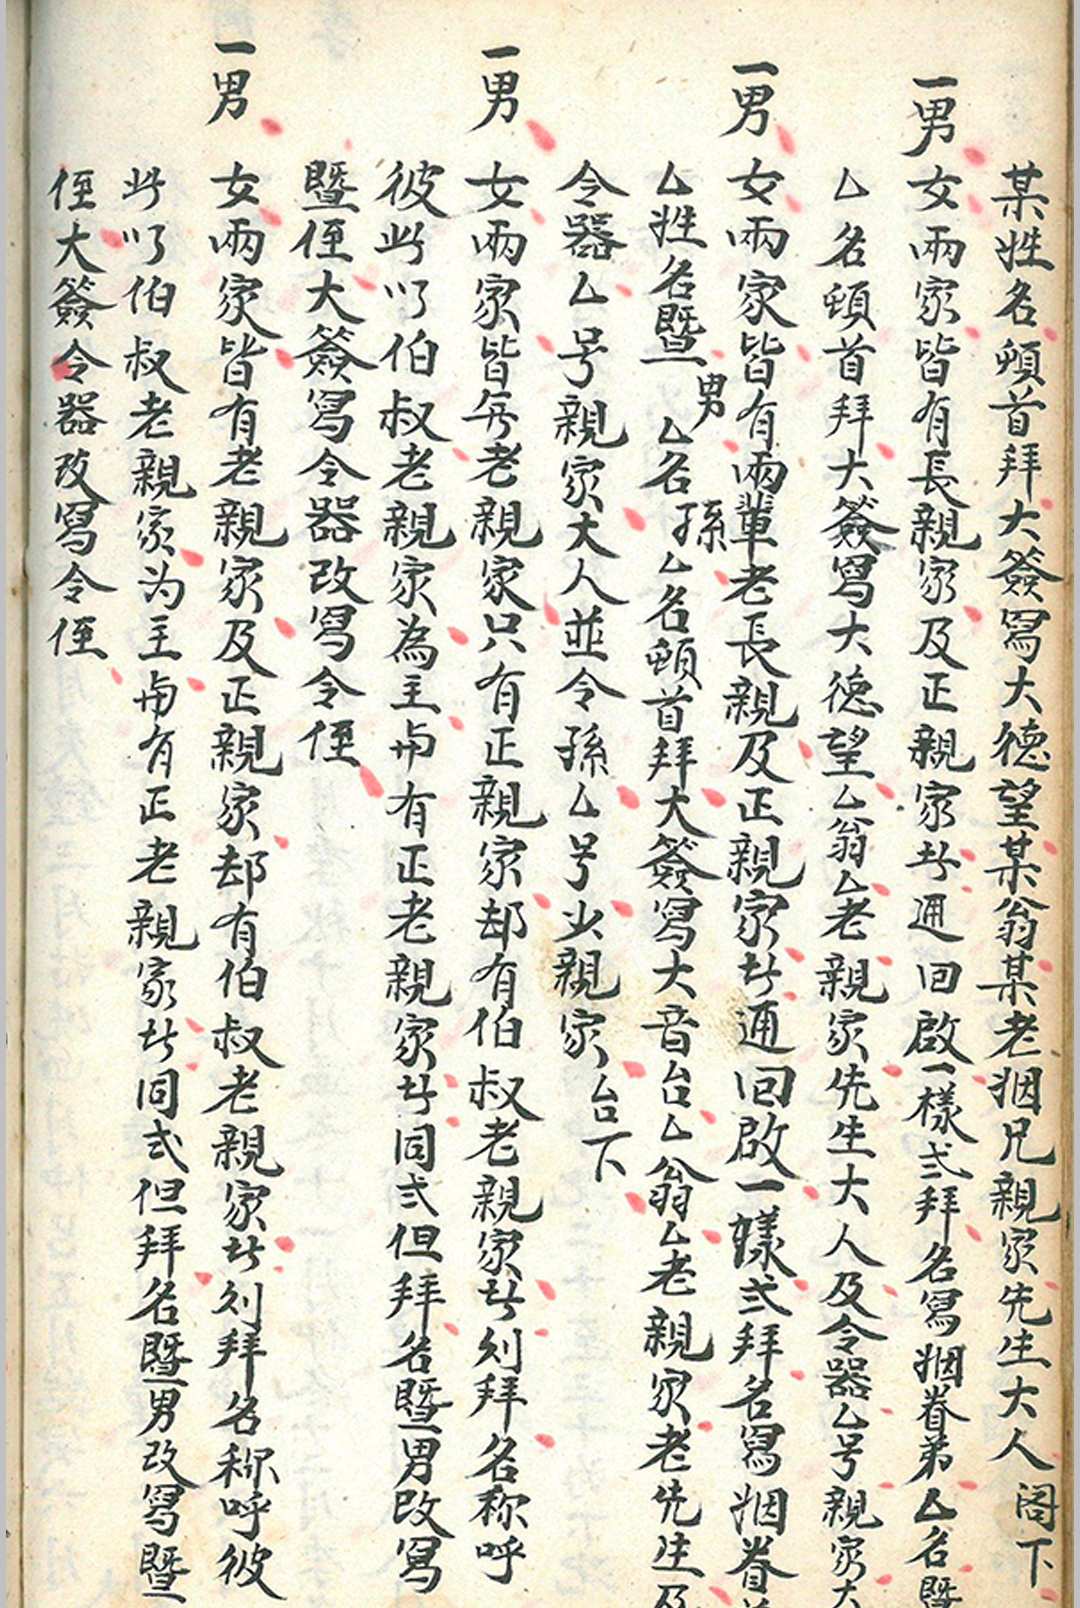 某姓名頓首拜大簽寫大德望某翁某老姻兄親家先生大人阁下
一男女兩家皆有長親家及正親家者通回啟一樣式拜名寫姻眷弟厶名暨
厶名頓首拜大簽寫大德望厶翁厶老親家先生大人及令器厶号親家大
一男女兩家皆有兩輩老長親及正親家者通回啟一樣式拜名寫姻眷
厶姓名暨男厶名孫厶名頓首拜大簽寫大音台厶翁厶老親家老先生及
令器厶号親家大人並令孫厶号少親家台下
一男女兩家皆無老親家只有正親家却有伯叔老親家者列拜名称呼
彼此以伯叔老親家為主与有正老親家者同式但拜名暨男改寫
暨侄大簽寫令器改寫令侄
一男女兩家皆有老親家及正親家却有伯叔老親家者列拜名称呼彼
此以伯叔老親家为主与有正老親家者同式但拜名暨男改寫暨
侄大簽令器改寫令侄